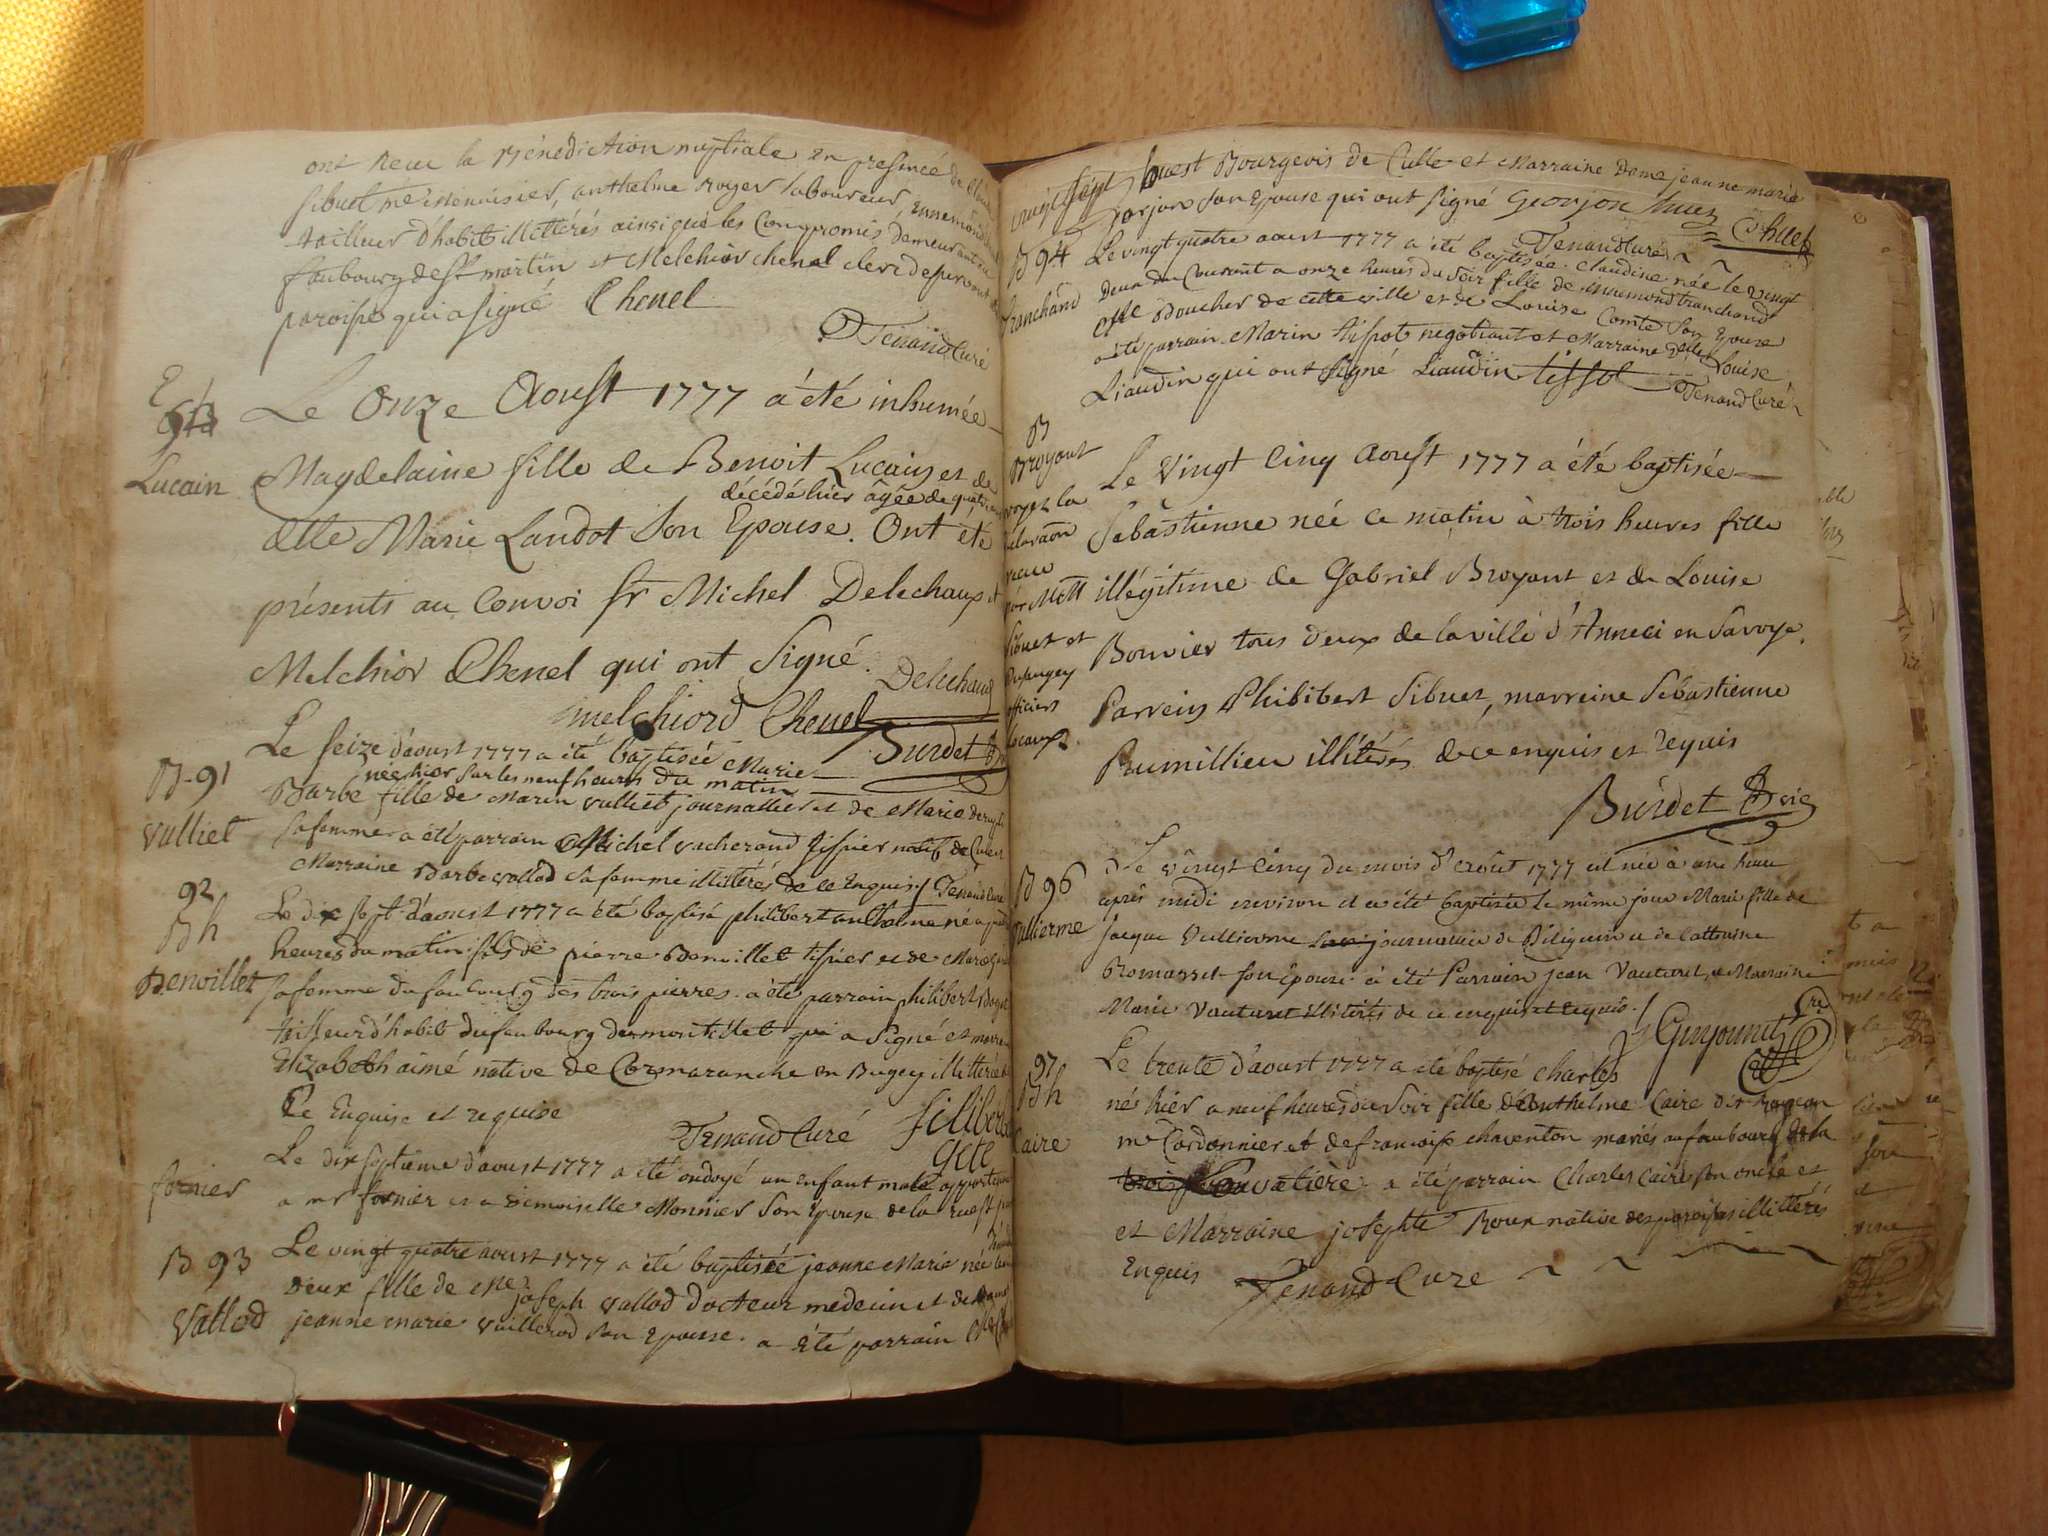 ont reçu la Bénédiction nuptiale en presence de
sibuet me menuisier, anthelme royer laboureur, ennemond
tailleur d'habit illittérés ainsi que les Compromis, demeurant
faubourg de St martin et Melchior chenel clerc
paroisse qui a signé Chenel
Tenand Curé
E
Lucain
Le Onze Aoust 1777 a été inhumée
Magdelaine fille de Benoit Lucain et de
décédé hier âgée de
dlle Marie Landot Son Epouse. Ont été
présents au Convoi Sr Michel Delechaux et
Melchior Chenel qui ont Signé.
Delechaux
melchiord Chenel
Burdet
B. 91
Valliet
Le seize d'aoust 1777 a été baptisée Marie
née hier sur les neuf heures du matin
Barbe fille de Marin Valliet journallier et de Marie
sa femme a été parrain Michel vacherand tissier natif de
Marraine Barbe vallod sa femme illittérés de ce Enquis Tenand Curé
92
Bh
Benoillet
Le dix sept d'aoust 1777 a été baptisé philibert anthelme né a
heures du matin fils de pierre Benoillet tissier et de
sa femme du faubourg des trois pierres. a été parrain philibert
tailleur d'habit du faubourg a Signé et
Elizabeth aimé native de Cormaranche en Bugey illittérée
Ce Enquise et requise
Tenand Curé filibert
fornier
Le dix septieme d'aoust 1777 a été ondoyé un enfant male
a mr fornier et a demoiselle Monnier Son Epouse de la rue
B 93
Vallod
Le vingt quatre aoust 1777 a été baptisée jeanne Marie née
Deux fille de Me joseph vallod Docteur medecin et de
jeanne marie Vuillerod Son Epouse. a été parrain
vingt sept
huest Bourgeois de Culle et Marraine Deme jeanne marie
gorjon Son Epouse qui ont Signé Georjon
Tenand Curé
B 94
Tranchand
Le vingt quatre aoust 1777 a été baptisée Claudine née le vingt
Deux du Courant a onze heures du Soir fille de ennemond tranchand
Me Boucher de cette ville et de Louise Comte Son Epouse
a été parrain Marin tissot negotiant et Marraine Delle Louise
Liaudin qui ont Signé Liaudin tissot Tenand Curé
B
Broyant
voyez la
Le vingt Cinq Aoust 1777 a été baptisée
Sebastienne née ce matin à trois heures fille
illégitime de Gabriel Broyant et de Louise
Bouvier tous deux de la ville d'Anneci en Savoye.
Sibuet et
officiers
locaux.
Parrein Philibert Sibuet, marreine Sébastienne
Rumillieu illitérés de ce enquis et requis
Burdet
B 96
Vullierme
Le vingt Cinq du mois d'Août 1777 est née à une heure
après midi environ et a été baptisée le même jour Marie fille de
Jacque Vullierme journalier de et de Catherine
Bromasset son épouse a été Parrain jean Vauturet, et Marraine
Marie Vauturet illiterés de ce enquis et requis.
97
Bh
Caire
Le trente d'aoust 1777 a été baptisé Charles
né hier a neuf heures du Soir fille d'Anthelme Caire dit
me Cordonnier et de françoise chaventon mariés au faubourg de la
a été parrain Charles Caire son oncle et
et Marraine josephte Roux native illittérés
Enquis Tenand Cure